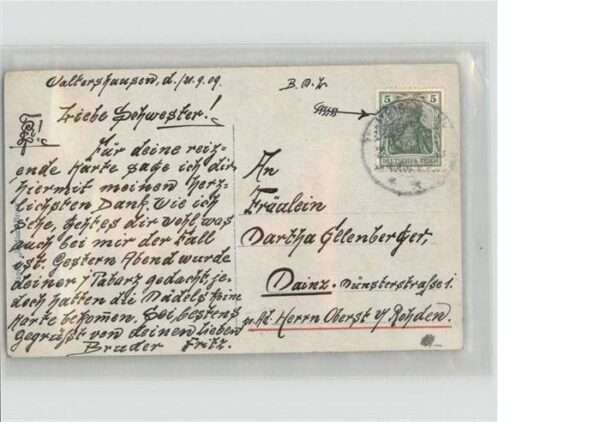 Waltershausen, d. 11.9.09.
B. D. Z.
Liebe Schwester!
Für deine reiz-
ende Karte sage ich dir
hiermit meinen herz-
lichsten Dank. Wie ich
sehe, geht es dir wohl, was
auch bei mir der Fall
ist. Gestern Abend wurde
deiner i/Tabarz gedacht, je-
doch hatten die Mädels keine
Karte bekommen. Sei bestens
Gegrüßt von deinem lieben
Bruder Fritz.
5 5
DEUTSCHES REICH
An
Fräulein
Martha Ellenberger,
Mainz. Münsterstraße 1.
pr. Ad. Herrn Oberst v/ Rohden.